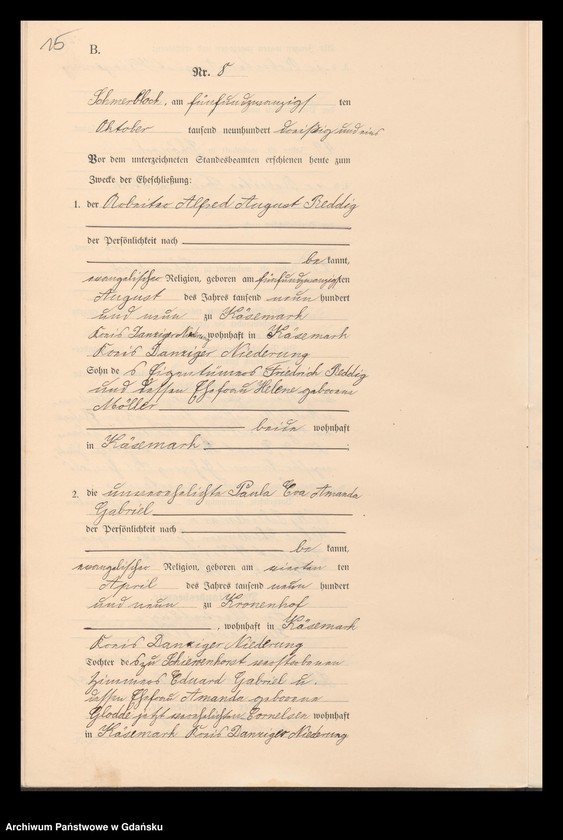 15
B.
Nr. 8
Schmerblock, am fünfundzwanzigsten
Oktober tausend neunhundert dreißig und eins
Vor dem unterzeichneten Standesbeamten erschienen heute zum
Zwecke der Eheschließung:
1. der Arbeiter Alfred August Reddig
der Persönlichkeit nach
be kannt,
evangelischer Religion, geboren am fünfundzwanzigsten
August des Jahres tausend neun hundert
und neun zu Käsemark
Kreis Danziger Niederung, wohnhaft in Käsemark
Kreis Danziger Niederung
Sohn des Eigentümers Friedrich Reddig
und dessen Ehefrau Helene geborene
Möller
beide wohnhaft
in Käsemark
2. die unverehelichte Paula Eva Amanda
Gabriel
der Persönlichkeit nach
be kannt,
evangelischer Religion, geboren am vierten ten
April des Jahres tausend neun hundert
und neun zu Kronenhof
, wohnhaft in Käsemark
Kreis Danziger Niederung
Tochter des zu Schiewenhorst verstorbenen
Zimmerers Eduard Gabriel u.
dessen Ehefrau Amanda geborene
Glodde jetzt verehelichten Cornelsen wohnhaft
in Käsemark Kreis Danziger Niederung
Archiwum Państwowe w Gdańsku